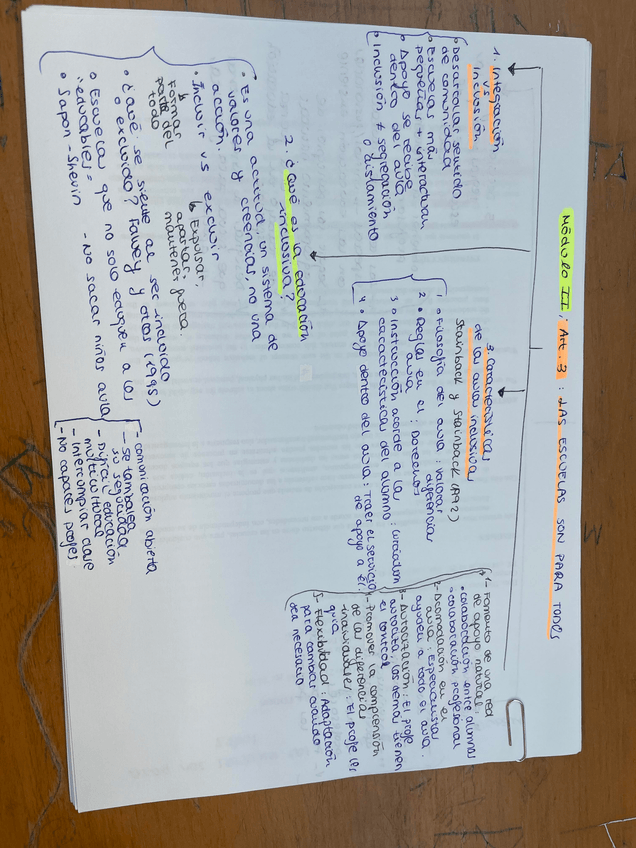 Módulo II, Art. 3 : LAS ESCUELAS SON PARA TODOS
1. Integración
vs
inclusión
• Desarrollar sentido
de comunidad
• Escuelas más
pequeñas + interactúan
• Apoyo se recibe
dentro del aula
• Inclusión ≠ segregación
o aislamiento
2. ¿Qué es la educación
inclusiva?
• Es una actitud, un sistema de
valores y creencias, no una
acción.
• Incluir vs excluir
Formar
parte del
todo
Expulsar,
apartar,
mantener fuera
• ¿Qué se siente al ser incluido
o excluido? Falvey y otros (1995)
• Escuelas que no solo eduquen a los
"educables"
• Sapon-Shevin
- No sacar niños aula
- comunicación abierta
- se tambalea
su seguridad
- Difícil educación
multicultural
- Interrumpir clase
- No capaces profes.
3. Características
de las aulas inclusivas
Stainback y Stainback (1992)
1 • Filosofía del aula : valorar
diferencias
2 • Reglas en el aula : Derechos
3 • Instrucción acorde a las
características del alumno :
4 • Apoyo dentro del aula : Traer el servicio
de apoyo a él.
1- Fomento de una red
de apoyo natural:
• colaboración entre alumnos
• colaboración profesional
2- Acomodación en el
aula : Especialistas
ayuden a todo el aula.
3- Autorización : El profe
autoriza, los demás tienen
el control
4- Promover la comprensión
de las diferencias
individuales : El profe les
guía
5- Flexibilidad : Adaptación
para cambiar cuando
sea necesario